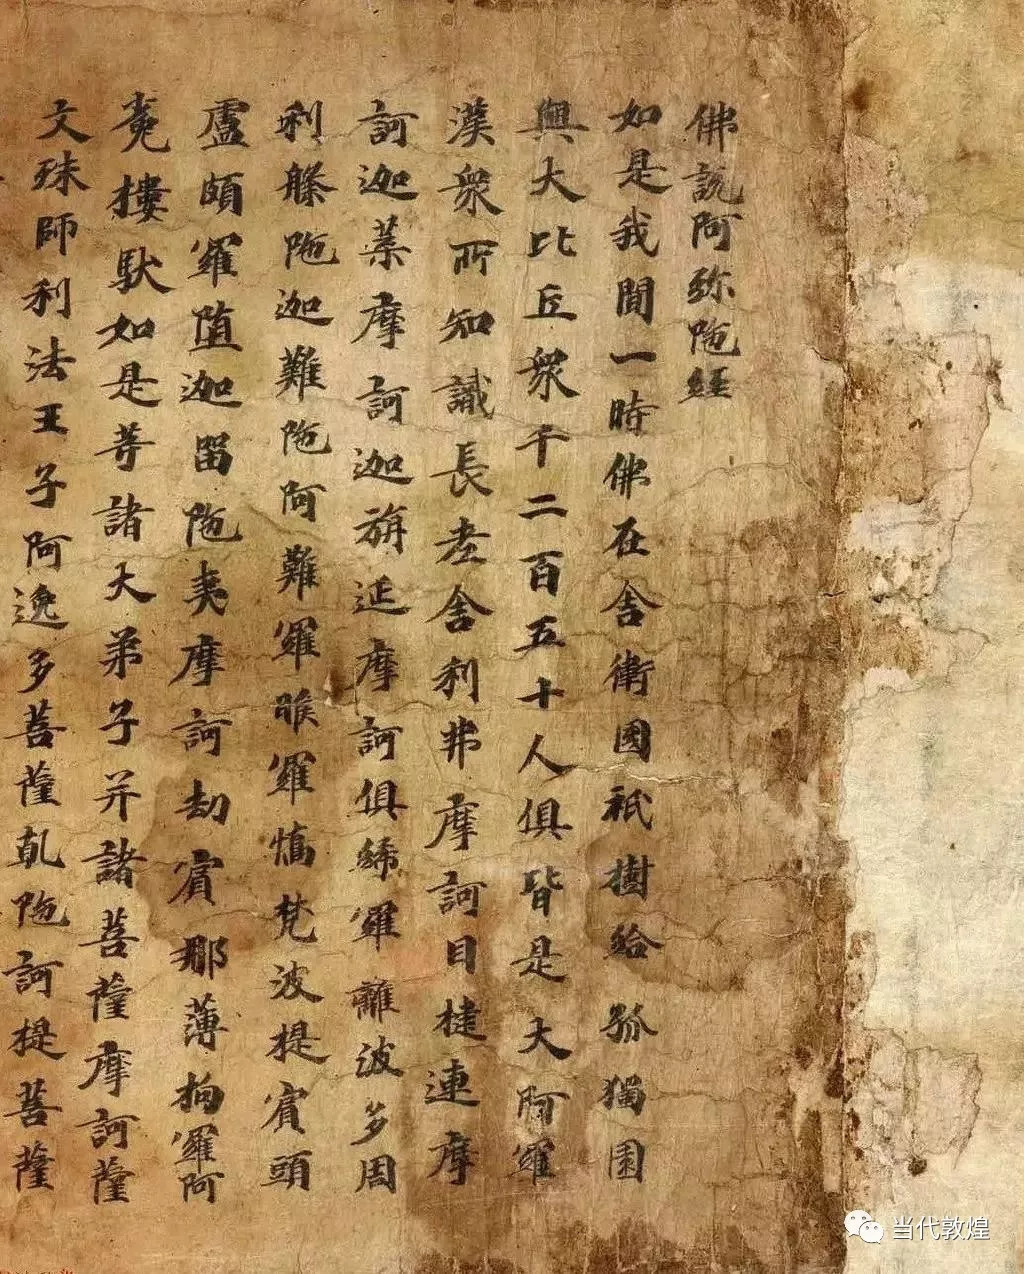 佛說阿弥陁經
如是我聞一時佛在舍衛國祇樹給孤獨園
與大比丘衆千二百五十人俱皆是大阿羅
漢衆所知識長老舍利弗摩訶目揵連摩
訶迦葉摩訶迦旃延摩訶俱絺羅離波多周
利槃陁迦難陁阿難羅睺羅憍梵波提賓頭
盧頗羅墮迦留陁夷摩訶劫賓那薄拘羅阿
㝹樓馱如是等諸大弟子并諸菩薩摩訶薩
文殊師利法王子阿逸多菩薩乹陁訶提菩薩
当代敦煌